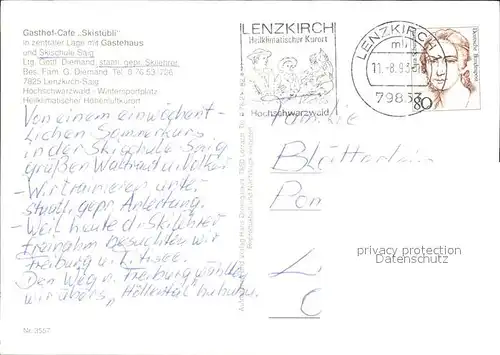 Gasthof-Cafe „Skistübli"
in zentraler Lage mit Gästehaus
und Skischule Saig
Ltg. Gottfr. Diemand, staatl. gepr. Skilehrer
Bes. Fam. G. Diemand Tel. 0 76 53/796
7825 Lenzkirch-Saig
Hochschwarzwald - Wintersportplatz
Heilklimatischer Höhenluftkurort
LENZKIRCH
Heilklimatischer Kurort
Hochschwarzwald
LENZKIRCH
11.-8.93
79853
Deutsche Bundespost
80
Von einem einwöchent-
lichen Sommerkurs
in der Skischule Saig
grüßen Waltraut u. Volker
- Wir trainieren unter
staatl. gepr. Anleitung.
- Weil heute d. Skilehrer
freinahm besuchten wir
Freiburg u. Titisee.
Den Weg n. Freiburg wählten
wir übers „Höllental" huhuhu.
Familie
privacy protection
Datenschutz
Nr. 3557